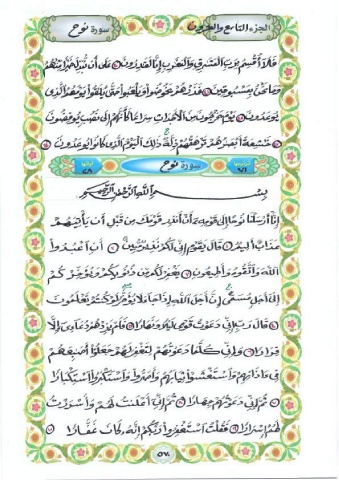 الجزء التاسع والعشرون سورة نوح
فلا أقسم برب المشرق والمغرب إنا لقدرون على أن نبدل خيرا منهم
وما نحن بمسبوقين فذرهم يخوضوا ويلعبوا حتى يلقوا يومهم الذى
يوعدون يوم يخرجون من الأجداث سراعا كأنهم إلى نصب يوفضون
خشعة أبصرهم ترهقهم ذلة ذلك اليوم الذى كانوا يوعدون
سورة نوح
بسم الله الرحمن الرحيم
إنا أرسلنا نوحا إلى قومه أن أنذر قومك من قبل أن يأتيهم
عذاب أليم قال يقوم إنى لكم نذير مبين أن اعبدوا
الله واتقوه وأطيعون يغفر لكم من ذنوبكم ويؤخركم
إلى أجل مسمى إن أجل الله إذا جاء لا يؤخر لو كنتم تعلمون
قال رب إنى دعوت قومى ليلا ونهارا فلم يزدهم دعاءى إلا
فرارا وإنى كلما دعوتهم لتغفر لهم جعلوا أصبعهم
فى ءاذانهم واستغشوا ثيابهم وأصروا واستكبروا استكبارا
ثم إنى دعوتهم جهارا ثم إنى أعلنت لهم وأسررت
لهم إسرارا فقلت استغفروا ربكم إنه كان غفارا
٥٧٠